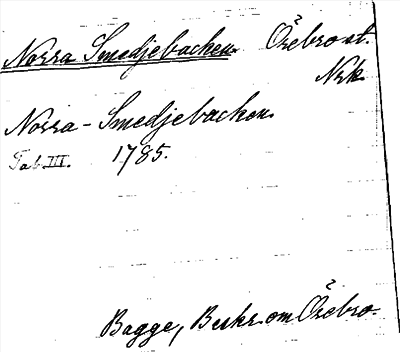 Norra Smedjebacken. Örebro st.
Nrk
Norra-Smedjebacken.
Tab. III. 1785.
Bagge, Beskr. om Örebro.